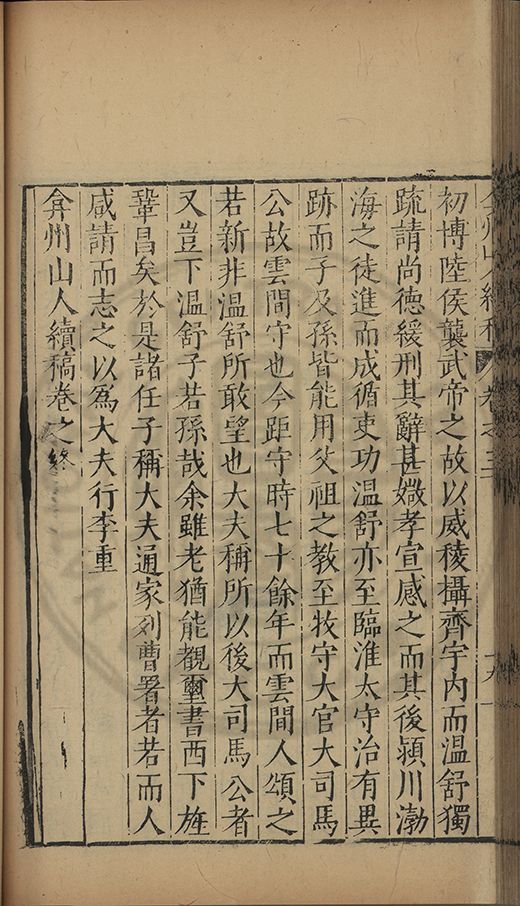 初博陸侯襲武帝之故以威稜攝齊宇内而温舒獨
疏請尚德緩刑其辭甚媺孝宣感之而其後潁川渤
海之徒進而成循吏功温舒亦至臨淮太守治有異
跡而子及孫皆能用父祖之教至牧守大官大司馬
公故雲間守也今距守時七十餘年而雲間人頌之
若新非温舒所敢望也大夫稱所以後大司馬公者
又豈下温舒子若孫哉余雖老猶能觀璽書西下旌
鞏昌矣於是諸任子稱大夫通家列曹署者若而人
咸請而志之以爲大夫行李重
弇州山人續稿卷之終